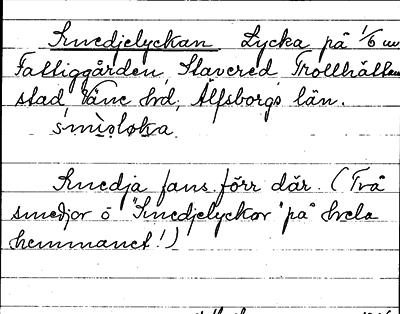 Smedjelyckan Lycka på 1/6 mtl
Fattiggården, Stavered, Trollhättans
stad, Väne hrd, Älfsborgs län.
smìsloka
Smedja fans förr där. (Två
smedjor o "Smedjelyckor" på hela
hemmanet!)